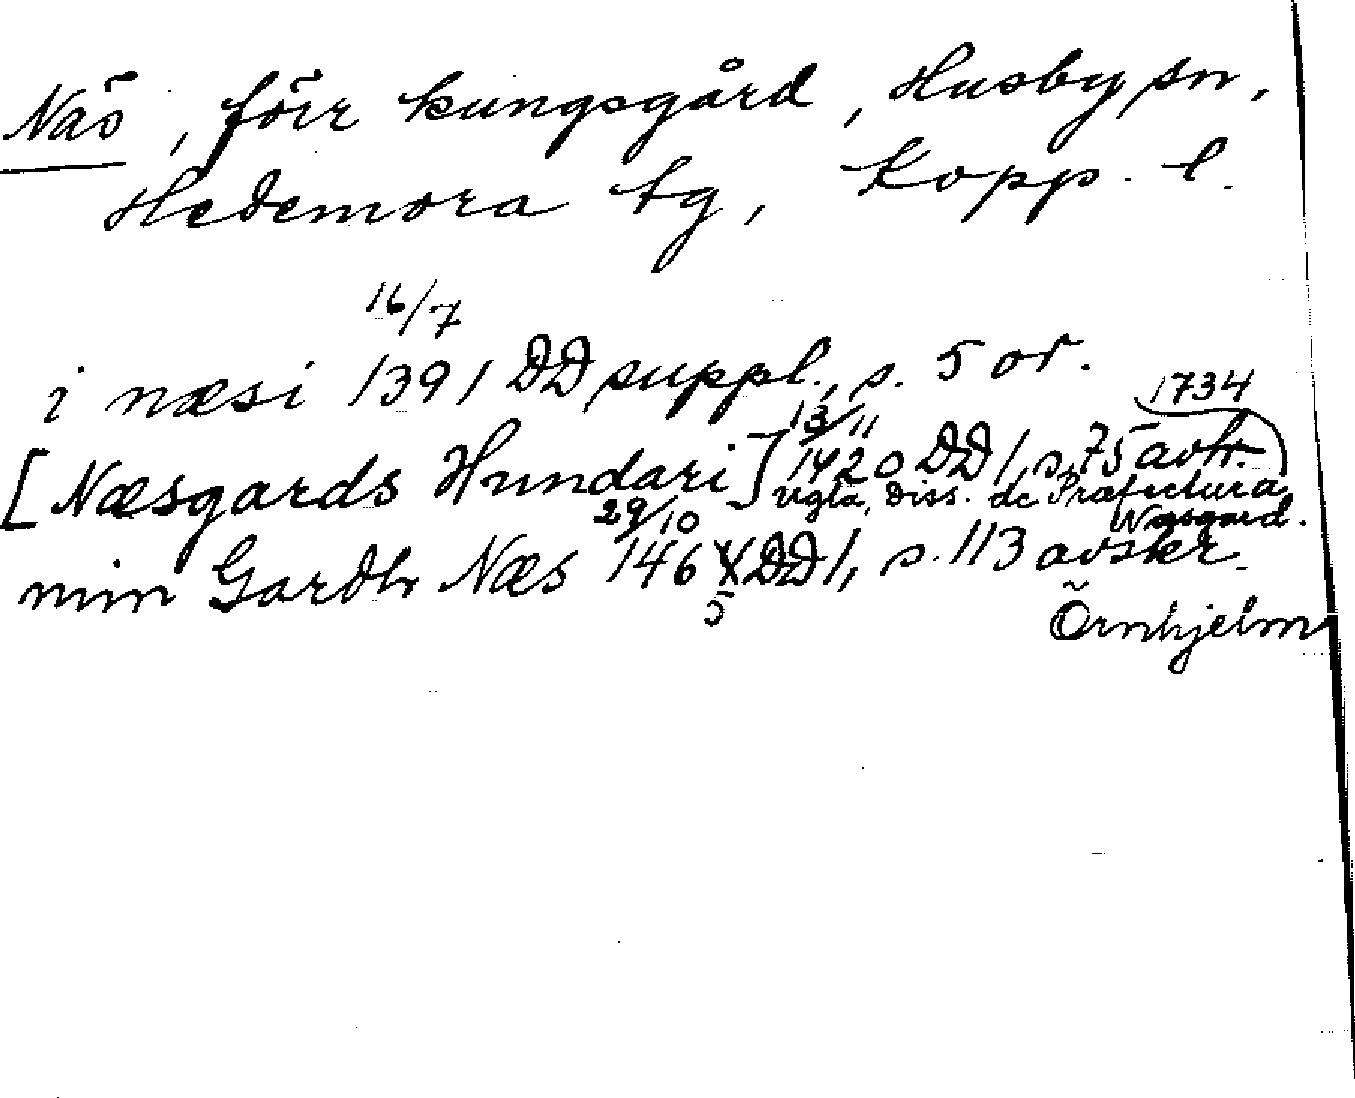 Näs, förr kungsgård, Husby sn,
Hedemora tg, Kopp. l.
16/7
i næsi 1391 DD suppl., s. 5 or.
1734
13/11
[Næsgards Hundari] 1420 DD 1, s. 75 avtr.
Ugla, Diss. de Præfectura
Næsgard.
29/10
min Gardh Næs 146X DD 1, s. 113 avskr.
5
Örnhjelm